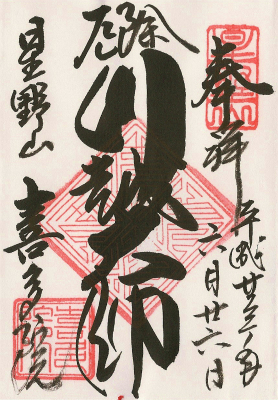 奉拝
平成廿三年
六月廿六日
厄除
川越大師
星野山
喜多院